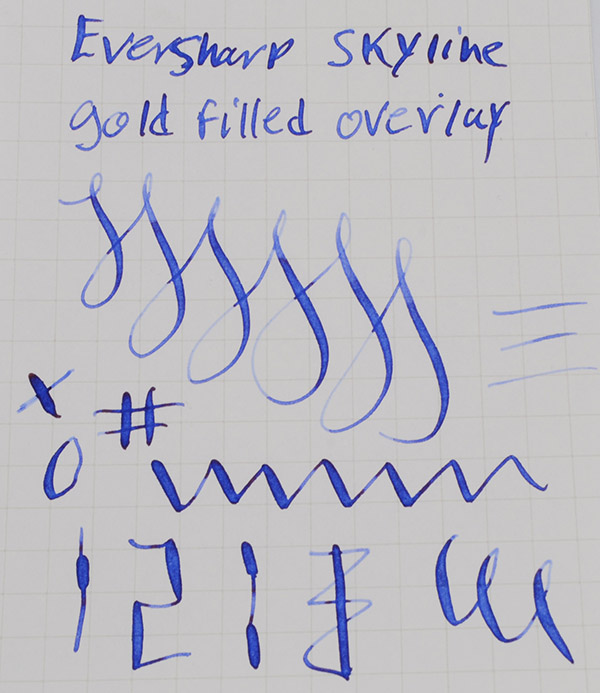 Eversharp Skyline
gold filled overlay